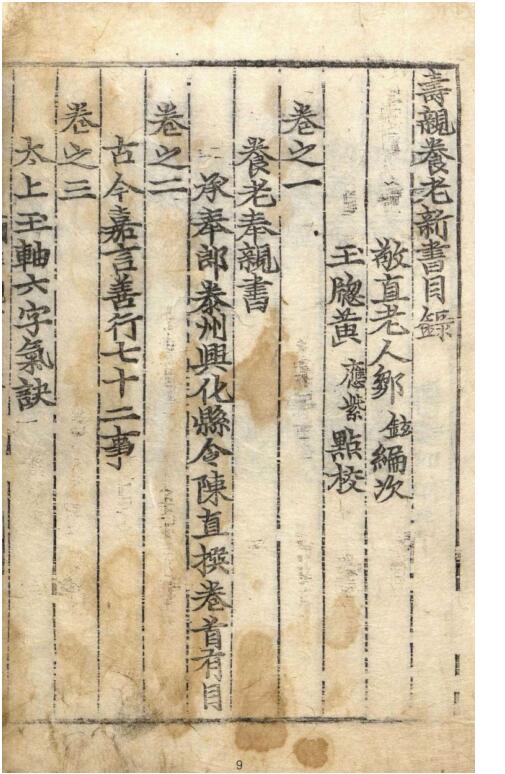 壽親養老新書目錄
敬直老人鄒 鉉編次
玉牕黃 應紫點校
卷之一
養老奉親書
承奉郎泰州興化縣令陳直撰卷首有目
卷之二
古今嘉言善行七十二事
卷之三
太上玉軸六字氣訣
9